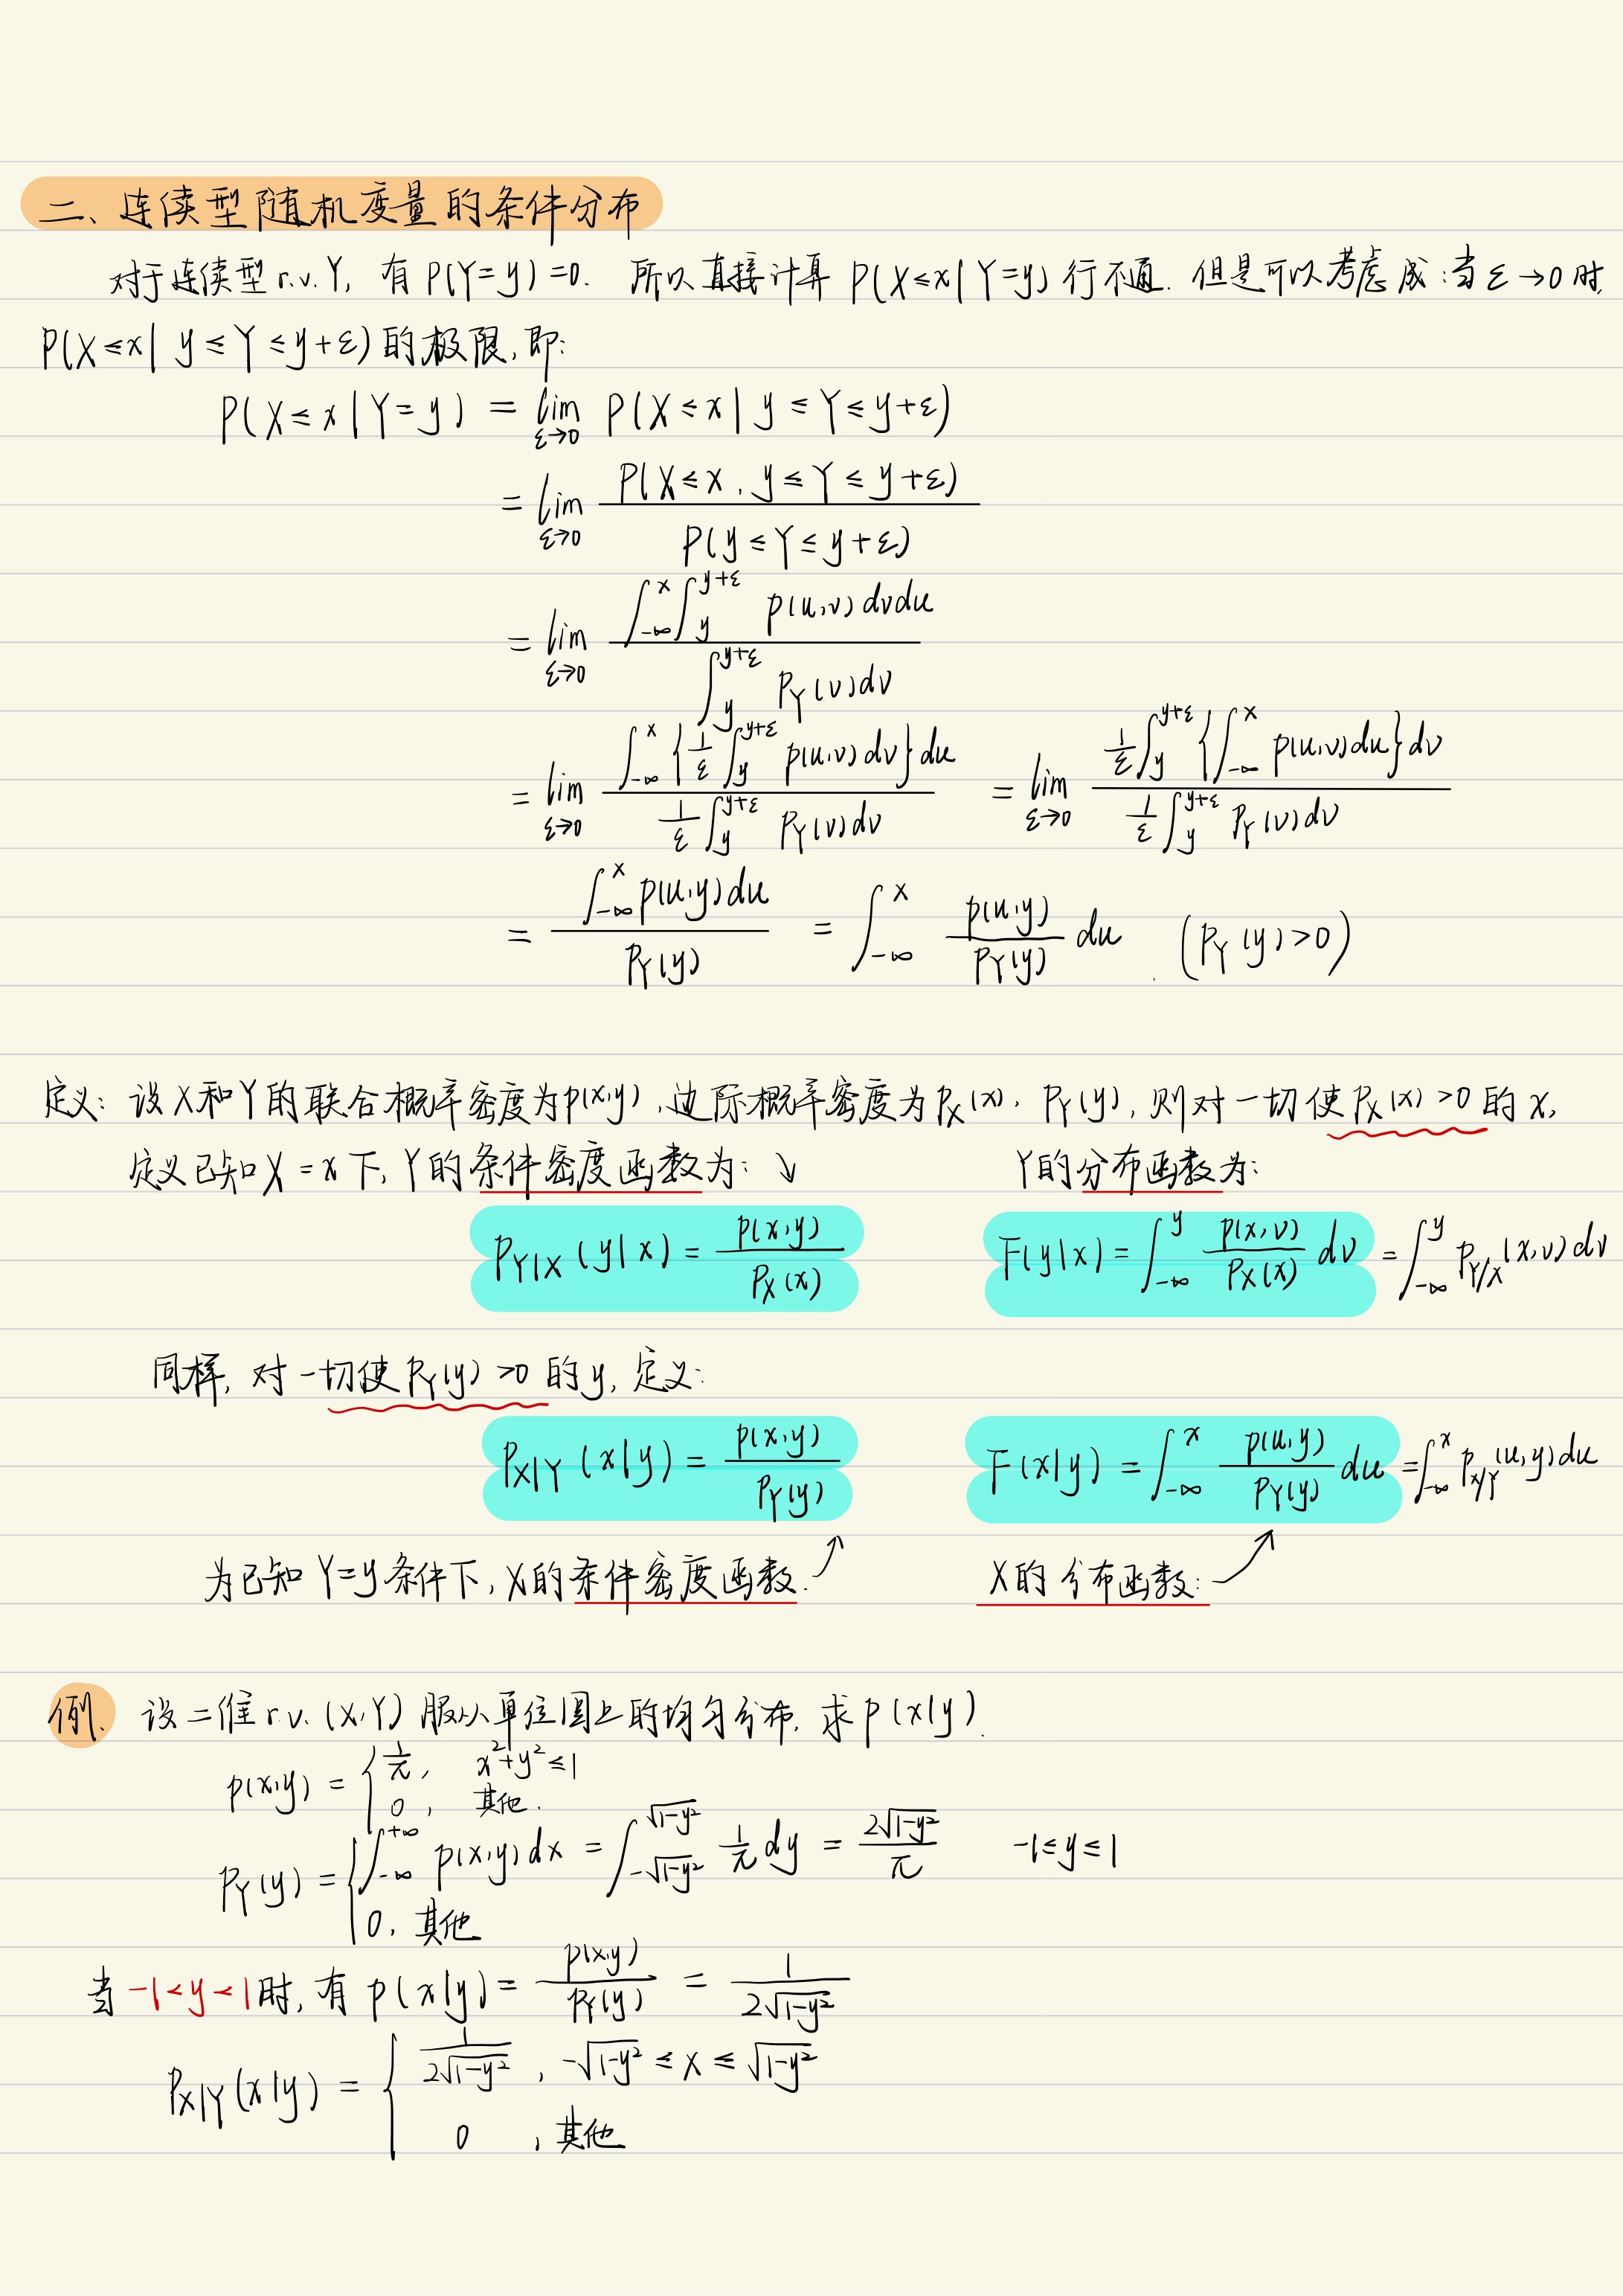 二、连续型随机变量的条件分布
对于连续型 r.v. Y, 有 P(Y=y)=0. 所以直接计算 P(X≤x|Y=y) 行不通. 但是可以考虑成:当 ε→0 时,
P(X≤x| y≤Y≤y+ε) 的极限,即:
P(X≤x|Y=y) = lim_{ε→0} P(X≤x| y≤Y≤y+ε)
= lim_{ε→0} \frac{P(X≤x, y≤Y≤y+ε)}{P(y≤Y≤y+ε)}
= lim_{ε→0} \frac{∫_{-∞}^{x}∫_{y}^{y+ε} p(u,v)dvdu}{∫_{y}^{y+ε} P_Y(v)dv}
= lim_{ε→0} \frac{∫_{-∞}^{x}{\frac{1}{ε}∫_{y}^{y+ε} p(u,v)dv}du}{\frac{1}{ε}∫_{y}^{y+ε} P_Y(v)dv} = lim_{ε→0} \frac{\frac{1}{ε}∫_{y}^{y+ε}{∫_{-∞}^{x} p(u,v)du}dv}{\frac{1}{ε}∫_{y}^{y+ε} P_Y(v)dv}
= \frac{∫_{-∞}^{x} p(u,y)du}{P_Y(y)} = ∫_{-∞}^{x} \frac{p(u,y)}{P_Y(y)} du. (P_Y(y)>0)
定义: 设 X 和 Y 的联合概率密度为 p(x,y), 边际概率密度为 P_X(x), P_Y(y), 则对一切使 P_X(x)>0 的 x,
定义已知 X=x 下, Y 的条件密度函数为: ↘ Y 的分布函数为:
P_{Y|X}(y|x) = \frac{p(x,y)}{P_X(x)} F(y|x) = ∫_{-∞}^{y} \frac{p(x,v)}{P_X(x)} dv = ∫_{-∞}^{y} P_{Y/X}(x,v)dv
同样, 对一切使 P_Y(y)>0 的 y, 定义:
P_{X|Y}(x|y) = \frac{p(x,y)}{P_Y(y)} F(x|y) = ∫_{-∞}^{x} \frac{p(u,y)}{P_Y(y)} du = ∫_{-∞}^{x} P_{X/Y}(u,y)du
为已知 Y=y 条件下, X 的条件密度函数. ↗ X 的分布函数: ↗
例. 设二维 r.v. (X,Y) 服从单位圆上的均匀分布, 求 p(x|y).
p(x,y) = { \frac{1}{π}, x²+y²≤1
0, 其他.
P_Y(y) = { ∫_{-∞}^{+∞} p(x,y)dx = ∫_{-√(1-y²)}^{√(1-y²)} \frac{1}{π} dy = \frac{2√(1-y²)}{π} -1≤y≤1
0, 其他
当 -1<y<1 时, 有 p(x|y) = \frac{p(x,y)}{P_Y(y)} = \frac{1}{2√(1-y²)}
P_{X|Y}(x|y) = { \frac{1}{2√(1-y²)}, -√(1-y²) ≤ x ≤ √(1-y²)
0, 其他